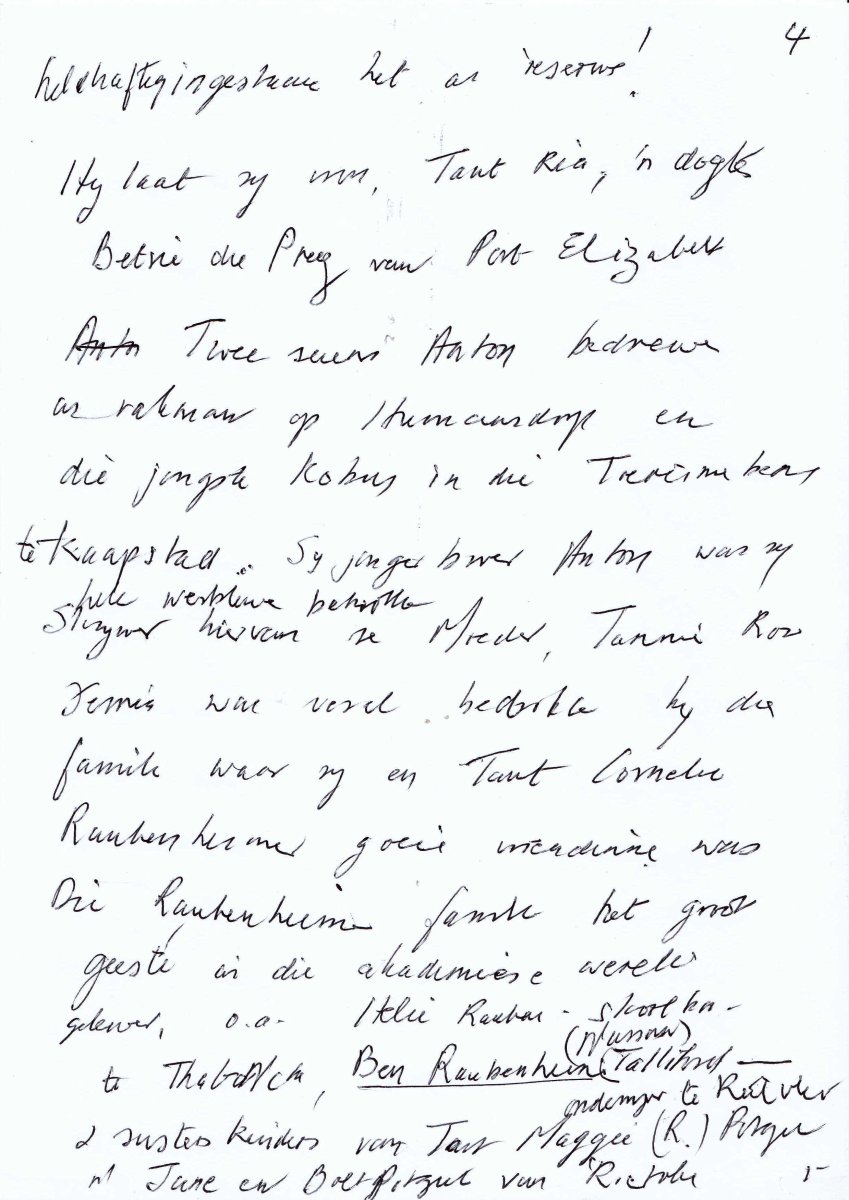 4
heldhaftig ingestaan het as reserwe!
Hy laat sy vrou, Tant Ria, 'n dogter
Betsie du Preez van Port Elizabeth
Anton Twee seuns Anton bedrewe
as vakman op Humansdorp en
die jongste Kobus in die Toerisme
te Kaapstad. Sy jonger broer Anton was sy
hele werklewe betrokke
Skrywer hiervan se Moeder, Tannie
was veral bedrokke by die
familie waar sy en Tant Cornelie
Raubenheimer goeie vriendinne was
Die Raubenheimer familie het groot
geeste in die akademiese wereld
gelewer, o.a. Rauben - skoolhoo -
te Ben Raubenheimer
onderwyser te Rietvlei
2 susters kinders van Tant Maggie (R.)
nl June en Boet van